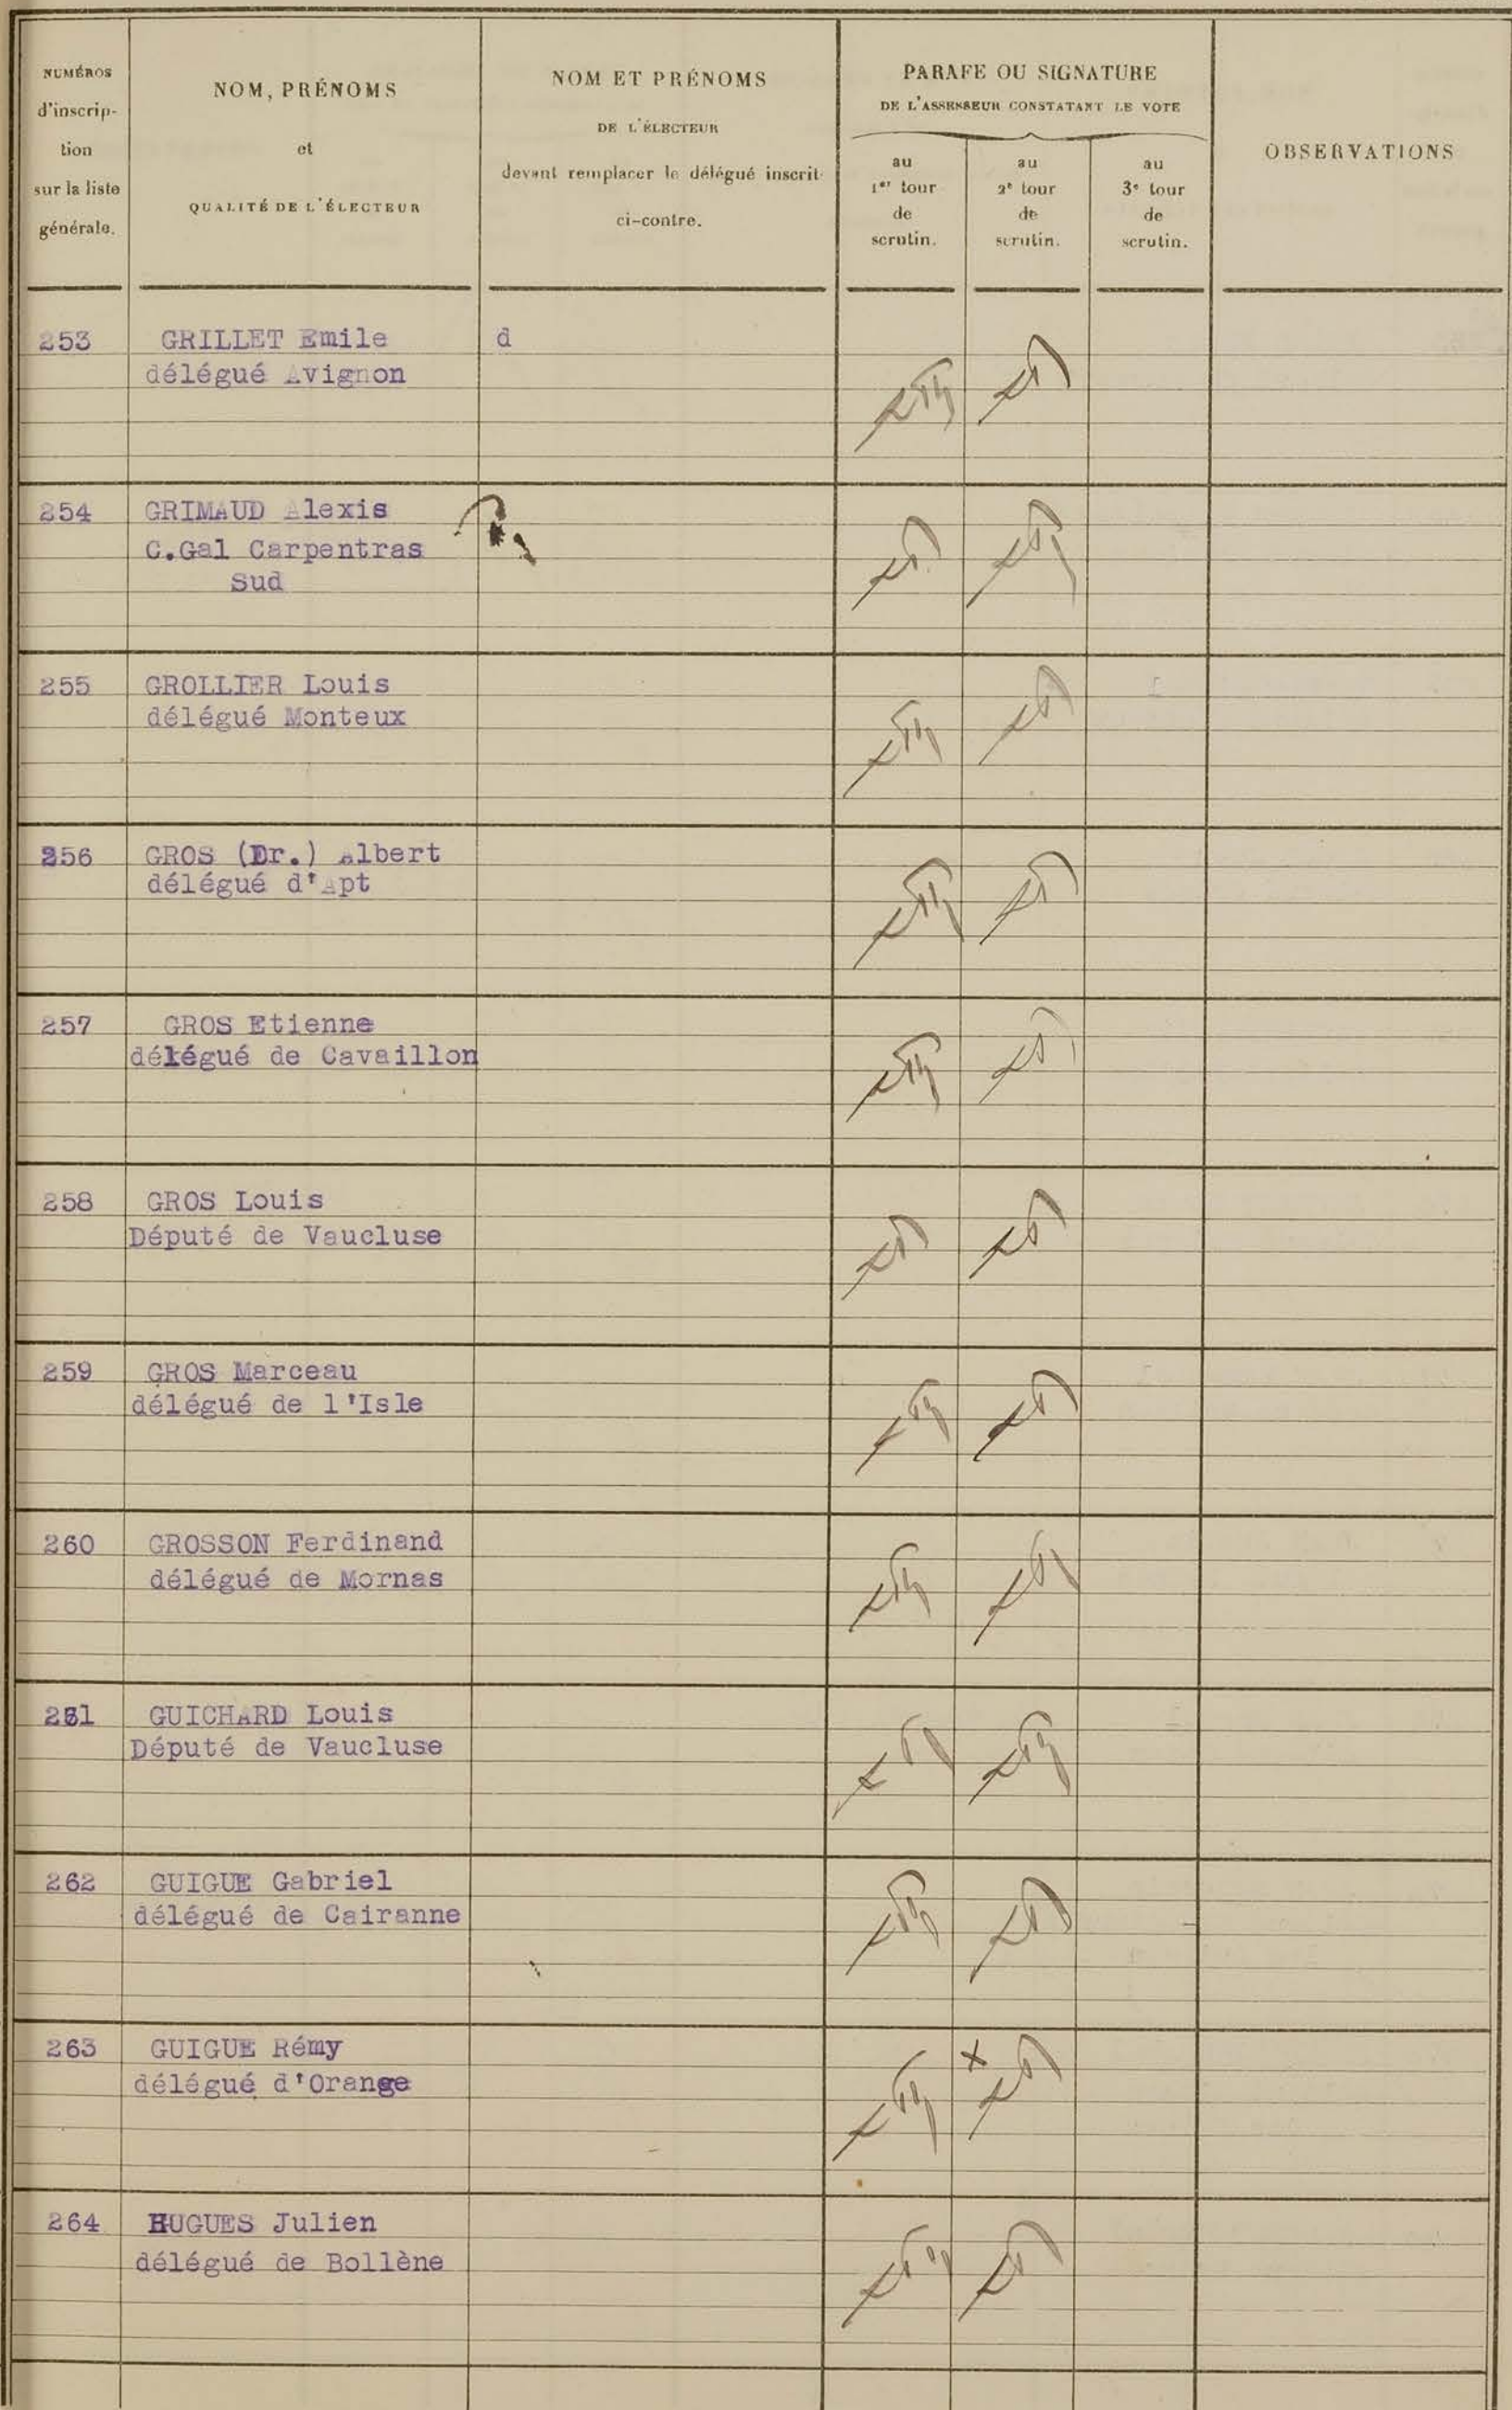 NUMÉROS
d'inscrip-
tion
sur la liste
générale.
NOM, PRÉNOMS
et
QUALITÉ DE L'ÉLECTEUR
NOM ET PRÉNOMS
DE L'ÉLECTEUR
devant remplacer le délégué inscrit
ci-contre.
PARAFE OU SIGNATURE
DE L'ASSESSEUR CONSTATANT LE VOTE
au
1er tour
de
scrutin.
au
2e tour
de
scrutin.
au
3e tour
de
scrutin.
OBSERVATIONS
253 GRILLET Emile d
délégué Avignon
254 GRIMAUD Alexis
C.Gal Carpentras
Sud
255 GROLLIER Louis
délégué Monteux
256 GROS (Dr.) Albert
délégué d'Apt
257 GROS Etienne
délégué de Cavaillon
258 GROS Louis
Député de Vaucluse
259 GROS Marceau
délégué de l'Isle
260 GROSSON Ferdinand
délégué de Mornas
261 GUICHARD Louis
Député de Vaucluse
262 GUIGUE Gabriel
délégué de Cairanne
263 GUIGUE Rémy
délégué d'Orange
264 HUGUES Julien
délégué de Bollène